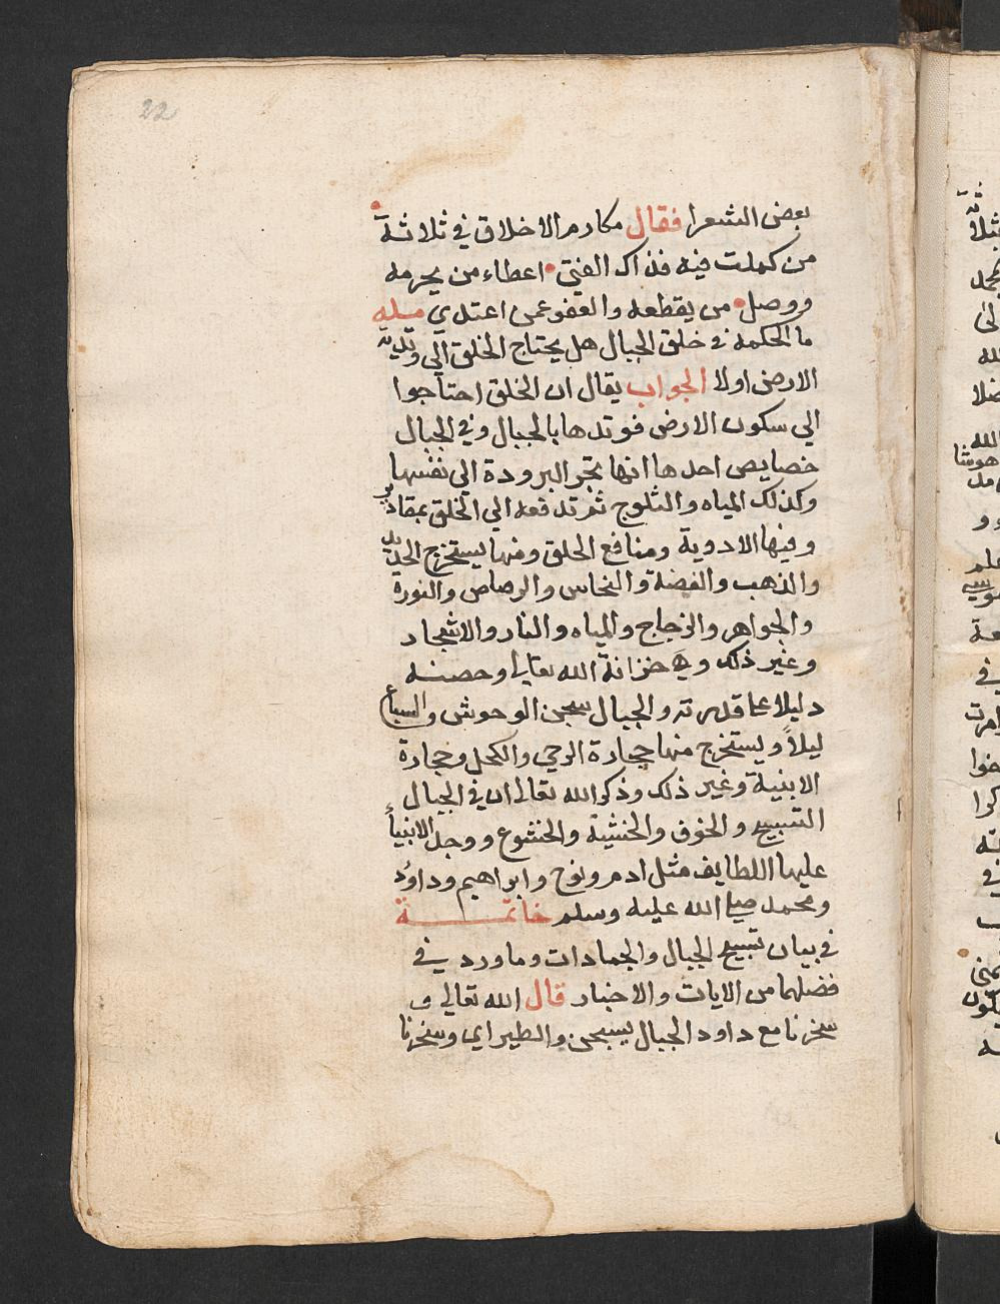 22
بعض الشعرا فقال مكارم الاخلاق في ثلاثة
من كملت فيه فذاك الفتي اعطاء من يحرمه
ووصل من يقطعه والعفو عمن اعتدي مسله
ما الحكمه في خلق الجبال هل يحتاج الخلق الي وتدية
الارض اولا الجواب يقال ان الخلق احتاجوا
الي سكون الارض فوتدها بالجبال وفي الجبال
خصايص احدها انها تجر البرودة الي نفسها
وكذلك المياه والثلوج ثم تدفعه الي الخلق بمقادير
وفيها الادوية ومنافع الخلق ومنها يستخرج الحديد
والذهب والفضة والنحاس والرصاص والنورة
والجواهر والزجاج والمياه والنار والاشجار
وغير ذلك وهي خزانة الله تعالى وحصنه
دليلا على قدرته والجبال سجن الوحوش والسباع
ليلاً ويستخرج منها حجارة الرحي والكحل وحجارة
الابنية وغير ذلك وذكر الله تعالى ان في الجبال
التسبيح والخوف والخشية والخشوع ووجد الانبياء
عليها اللطايف مثل ادم ونوح وابراهيم وداود
ومحمد صلى الله عليه وسلم خاتمــة
في بيان تسبيح الجبال والجمادات وما ورد في
فضلهما من الايات والاخبار قال الله تعالي و
سخرنا مع داود الجبال يسبحن والطير اي وسخرنا